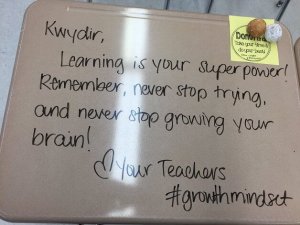 Kwydir,
Learning is your superpower!
Remember, never stop trying,
and never stop growing your
brain!
♡ Your Teachers
#growthmindset